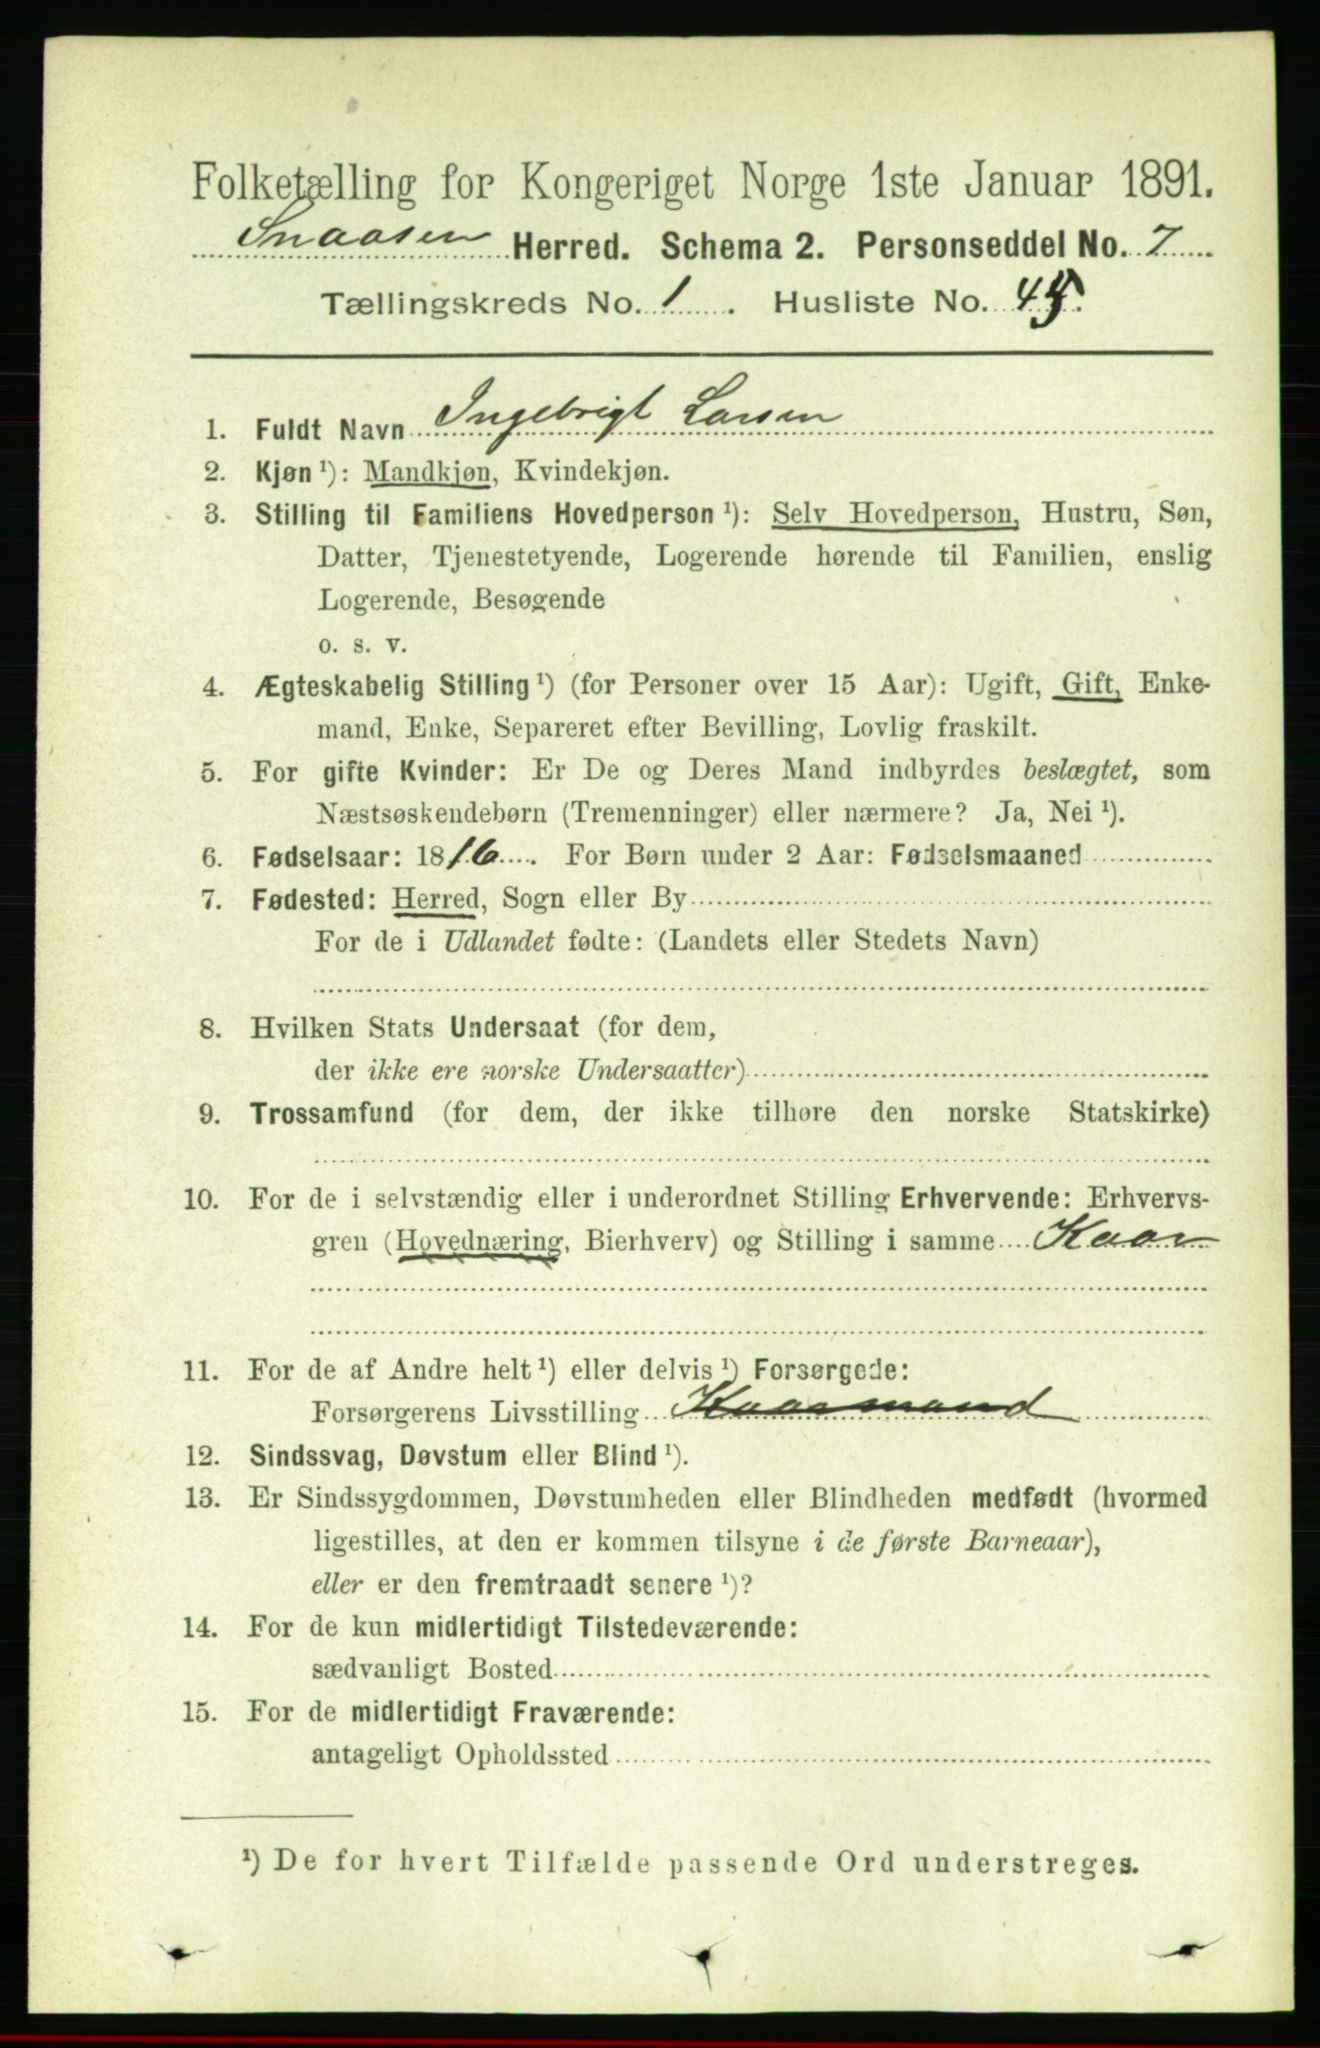 Folketælling for Kongeriget Norge 1ste Januar 1891.
Snaasen Herred. Schema 2. Personseddel No. 7
Tællingskreds No. 1. Husliste No. 45.
1. Fuldt Navn Ingebrigt Larsen
2. Kjøn ¹): Mandkjøn, Kvindekjøn.
3. Stilling til Familiens Hovedperson ¹): Selv Hovedperson, Hustru, Søn,
Datter, Tjenestetyende, Logerende hørende til Familien, enslig
Logerende, Besøgende
o. s. v.
4. Ægteskabelig Stilling ¹) (for Personer over 15 Aar): Ugift, Gift, Enke-
mand, Enke, Separeret efter Bevilling, Lovlig fraskilt.
5. For gifte Kvinder: Er De og Deres Mand indbyrdes beslægtet, som
Næstsøskendebørn (Tremenninger) eller nærmere? Ja, Nei ¹).
6. Fødselsaar: 1816. For Børn under 2 Aar: Fødselsmaaned
7. Fødested: Herred, Sogn eller By
For de i Udlandet fødte: (Landets eller Stedets Navn)
8. Hvilken Stats Undersaat (for dem,
der ikke ere norske Undersaatter)
9. Trossamfund (for dem, der ikke tilhøre den norske Statskirke)
10. For de i selvstændig eller i underordnet Stilling Erhvervende: Erhvervs-
gren (Hovednæring, Bierhverv) og Stilling i samme Kaar
11. For de af Andre helt ¹) eller delvis ¹) Forsørgede:
Forsørgerens Livsstilling Kaarmand
12. Sindssvag, Døvstum eller Blind ¹).
13. Er Sindssygdommen, Døvstumheden eller Blindheden medfødt (hvormed
ligestilles, at den er kommen tilsyne i de første Barneaar),
eller er den fremtraadt senere ¹)?
14. For de kun midlertidigt Tilstedeværende:
sædvanligt Bosted
15. For de midlertidigt Fraværende:
antageligt Opholdssted
¹) De for hvert Tilfælde passende Ord understreges.